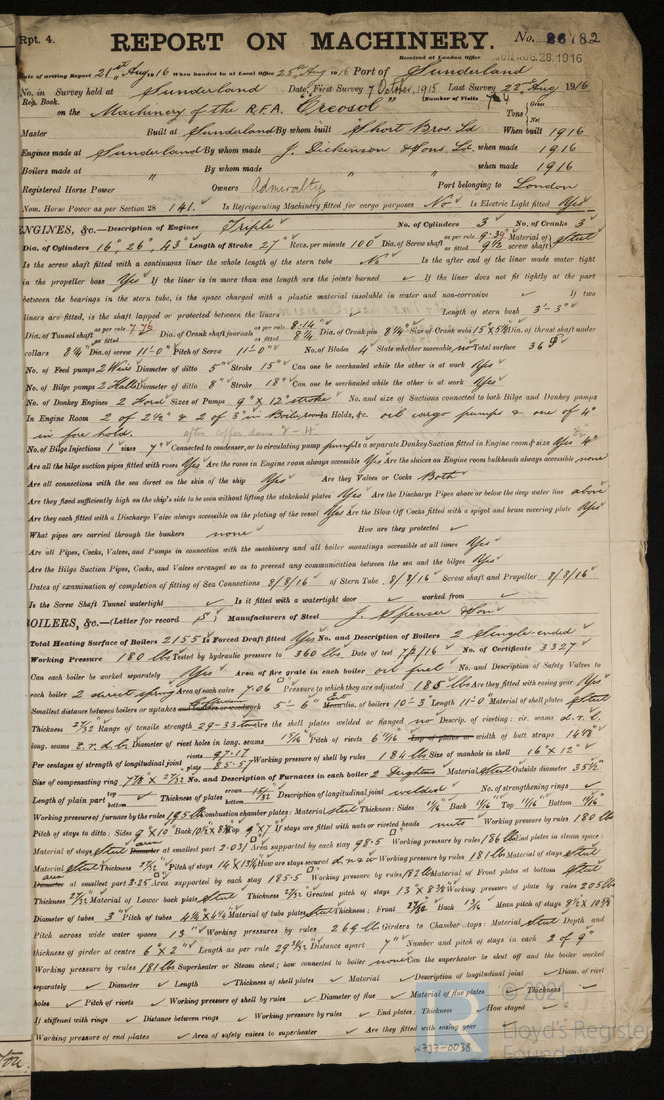 Rpt. 4.
REPORT ON MACHINERY.
No. 26182
Received at London Office MON. AUG. 28. 1916
Date of writing Report 21st Aug 1916 When handed in at Local Office 25th Aug 1916 Port of Sunderland
No. in Survey held at Sunderland Date, First Survey 7 October, 1915 Last Survey 22nd Aug 1916
Reg. Book. (Number of Visits 74
on the Machinery of the R.F.A. "Creosol" Tons { Gross Net
Master Built at Sunderland By whom built Short Bros. Ld When built 1916
Engines made at Sunderland By whom made J. Dickinson & Sons Ld. when made 1916
Boilers made at " By whom made " when made 1916
Registered Horse Power Owners Admiralty Port belonging to London
Nom. Horse Power as per Section 28 141. Is Refrigerating Machinery fitted for cargo purposes No Is Electric Light fitted Yes
ENGINES, &c.—Description of Engines Triple No. of Cylinders 3 No. of Cranks 3
Dia. of Cylinders 16" 26" 43" Length of Stroke 27" Revs. per minute 100 Dia. of Screw shaft as per rule 9.39 as fitted 9½ Material of screw shaft Steel
Is the screw shaft fitted with a continuous liner the whole length of the stern tube No Is the after end of the liner made water tight
in the propeller boss Yes If the liner is in more than one length are the joints burned ✓ If the liner does not fit tightly at the part
between the bearings in the stern tube, is the space charged with a plastic material insoluble in water and non-corrosive ✓ If two
liners are fitted, is the shaft lapped or protected between the liners ✓ Length of stern bush 3'-3"
Dia. of Tunnel shaft as per rule 7.76 as fitted Dia. of Crank shaft journals as per rule 8.14 as fitted 8¼ Dia. of Crank pin 8¼ Size of Crank webs 15"x5¼ Dia. of thrust shaft under
collars 8¼ Dia. of screw 11'-0" Pitch of Screw 11'-0" No. of Blades 4 State whether moveable no Total surface 36
No. of Feed pumps 2 Weirs Diameter of ditto 5" Stroke 15" Can one be overhauled while the other is at work Yes
No. of Bilge pumps 2 Diameter of ditto 8" Stroke 18" Can one be overhauled while the other is at work Yes
No. of Donkey Engines 2 Sizes of Pumps 9" x 12" stroke No. and size of Suctions connected to both Bilge and Donkey pumps
In Engine Room 2 of 2½" & 2 of 3" in Boiler room Holds, &c. oil cargo pumps & one of 4"
in fore hold.
No. of Bilge Injections 1 sizes 7" Connected to condenser, or to circulating pump pump Is a separate Donkey Suction fitted in Engine room & size Yes 4"
Are all the bilge suction pipes fitted with roses Yes Are the roses in Engine room always accessible Yes Are the sluices on Engine room bulkheads always accessible none
Are all connections with the sea direct on the skin of the ship Yes Are they Valves or Cocks Both
Are they fixed sufficiently high on the ship's side to be seen without lifting the stokehold plates Yes Are the Discharge Pipes above or below the deep water line above
Are they each fitted with a Discharge Valve always accessible on the plating of the vessel Yes Are the Blow Off Cocks fitted with a spigot and brass covering plate Yes
What pipes are carried through the bunkers none How are they protected ✓
Are all Pipes, Cocks, Valves, and Pumps in connection with the machinery and all boiler mountings accessible at all times Yes
Are the Bilge Suction Pipes, Cocks, and Valves arranged so as to prevent any communication between the sea and the bilges Yes
Dates of examination of completion of fitting of Sea Connections 8/8/16 of Stern Tube 8/8/16 Screw shaft and Propeller 8/8/16
Is the Screw Shaft Tunnel watertight ✓ Is it fitted with a watertight door ✓ worked from ✓
BOILERS, &c.—(Letter for record S) Manufacturers of Steel J. Spencer & Son
Total Heating Surface of Boilers 2155 Is Forced Draft fitted Yes No. and Description of Boilers 2 Single-ended
Working Pressure 180 lbs Tested by hydraulic pressure to 360 lbs Date of test 7/2/16 No. of Certificate 3327
Can each boiler be worked separately Yes Area of fire grate in each boiler oil fuel No. and Description of Safety Valves to
each boiler 2 direct spring Area of each valve 7.06 Pressure to which they are adjusted 185 lbs Are they fitted with easing gear Yes
Smallest distance between boilers or uptakes 5'-6" dia. of boilers 10'-3" Length 11'-0" Material of shell plates Steel
Thickness 27/32 Range of tensile strength 29-33 tons Are the shell plates welded or flanged no Descrip. of riveting: cir. seams d.r.l.
long. seams t.r.d.b. Diameter of rivet holes in long. seams 15/16 Pitch of rivets 6 11/16 width of butt straps 14⅞
Per centages of strength of longitudinal joint rivets 87.17 plate 85.57 Working pressure of shell by rules 184 lbs Size of manhole in shell 16" x 12"
Size of compensating ring 7⅞ x 27/32 No. and Description of Furnaces in each boiler 2 Deightons Material steel Outside diameter 35½"
Length of plain part top bottom ✓ Thickness of plates crown bottom 15/32 Description of longitudinal joint welded No. of strengthening rings ✓
Working pressure of furnace by the rules 195 lbs Combustion chamber plates: Material steel Thickness: Sides 11/16 Back 11/16 Top 11/16 Bottom 11/16
Pitch of stays to ditto: Sides 9"x10" Back Top 9"x7" If stays are fitted with nuts or riveted heads nuts Working pressure by rules 180 lbs
Material of stays steel area at smallest part 2.031 Area supported by each stay 98.5 Working pressure by rules 186 lbs End plates in steam space:
Material steel Thickness 27/32 Pitch of stays 14 x 13¼ How are stays secured d.n. & w Working pressure by rules 181 lbs Material of stays steel
area at smallest part 3.25 Area supported by each stay 185.5 Working pressure by rules 182 lbs Material of Front plates at bottom Steel
Thickness 27/32 Material of Lower back plate steel Thickness 27/32 Greatest pitch of stays 13" x 8⅞ Working pressure of plate by rules 205 lbs
Diameter of tubes 3" Pitch of tubes 4¼ x 4¼ Material of tube plates steel Thickness: Front 27/32 Back 13/16 Mean pitch of stays
Pitch across wide water spaces 13" Working pressures by rules 269 lbs Girders to Chamber tops: Material Steel Depth and
thickness of girder at centre 6" x 2" Length as per rule 29 3/32 Distance apart 7" Number and pitch of stays in each 2 of 9"
Working pressure by rules 181 lbs Superheater or Steam chest; how connected to boiler none Can the superheater be shut off and the boiler worked
separately ✓ Diameter ✓ Length ✓ Thickness of shell plates ✓ Material ✓ Description of longitudinal joint ✓ Diam. of rivet
holes ✓ Pitch of rivets ✓ Working pressure of shell by rules ✓ Diameter of flue ✓ Material of flue plates ✓ Thickness ✓
If stiffened with rings ✓ Distance between rings ✓ Working pressure by rules ✓ End plates: Thickness ✓ How stayed ✓
Working pressure of end plates ✓ Area of safety valves to superheater ✓ Are they fitted with easing gear ✓
© 2021
Lloyd's Register
Foundation
W737-0038